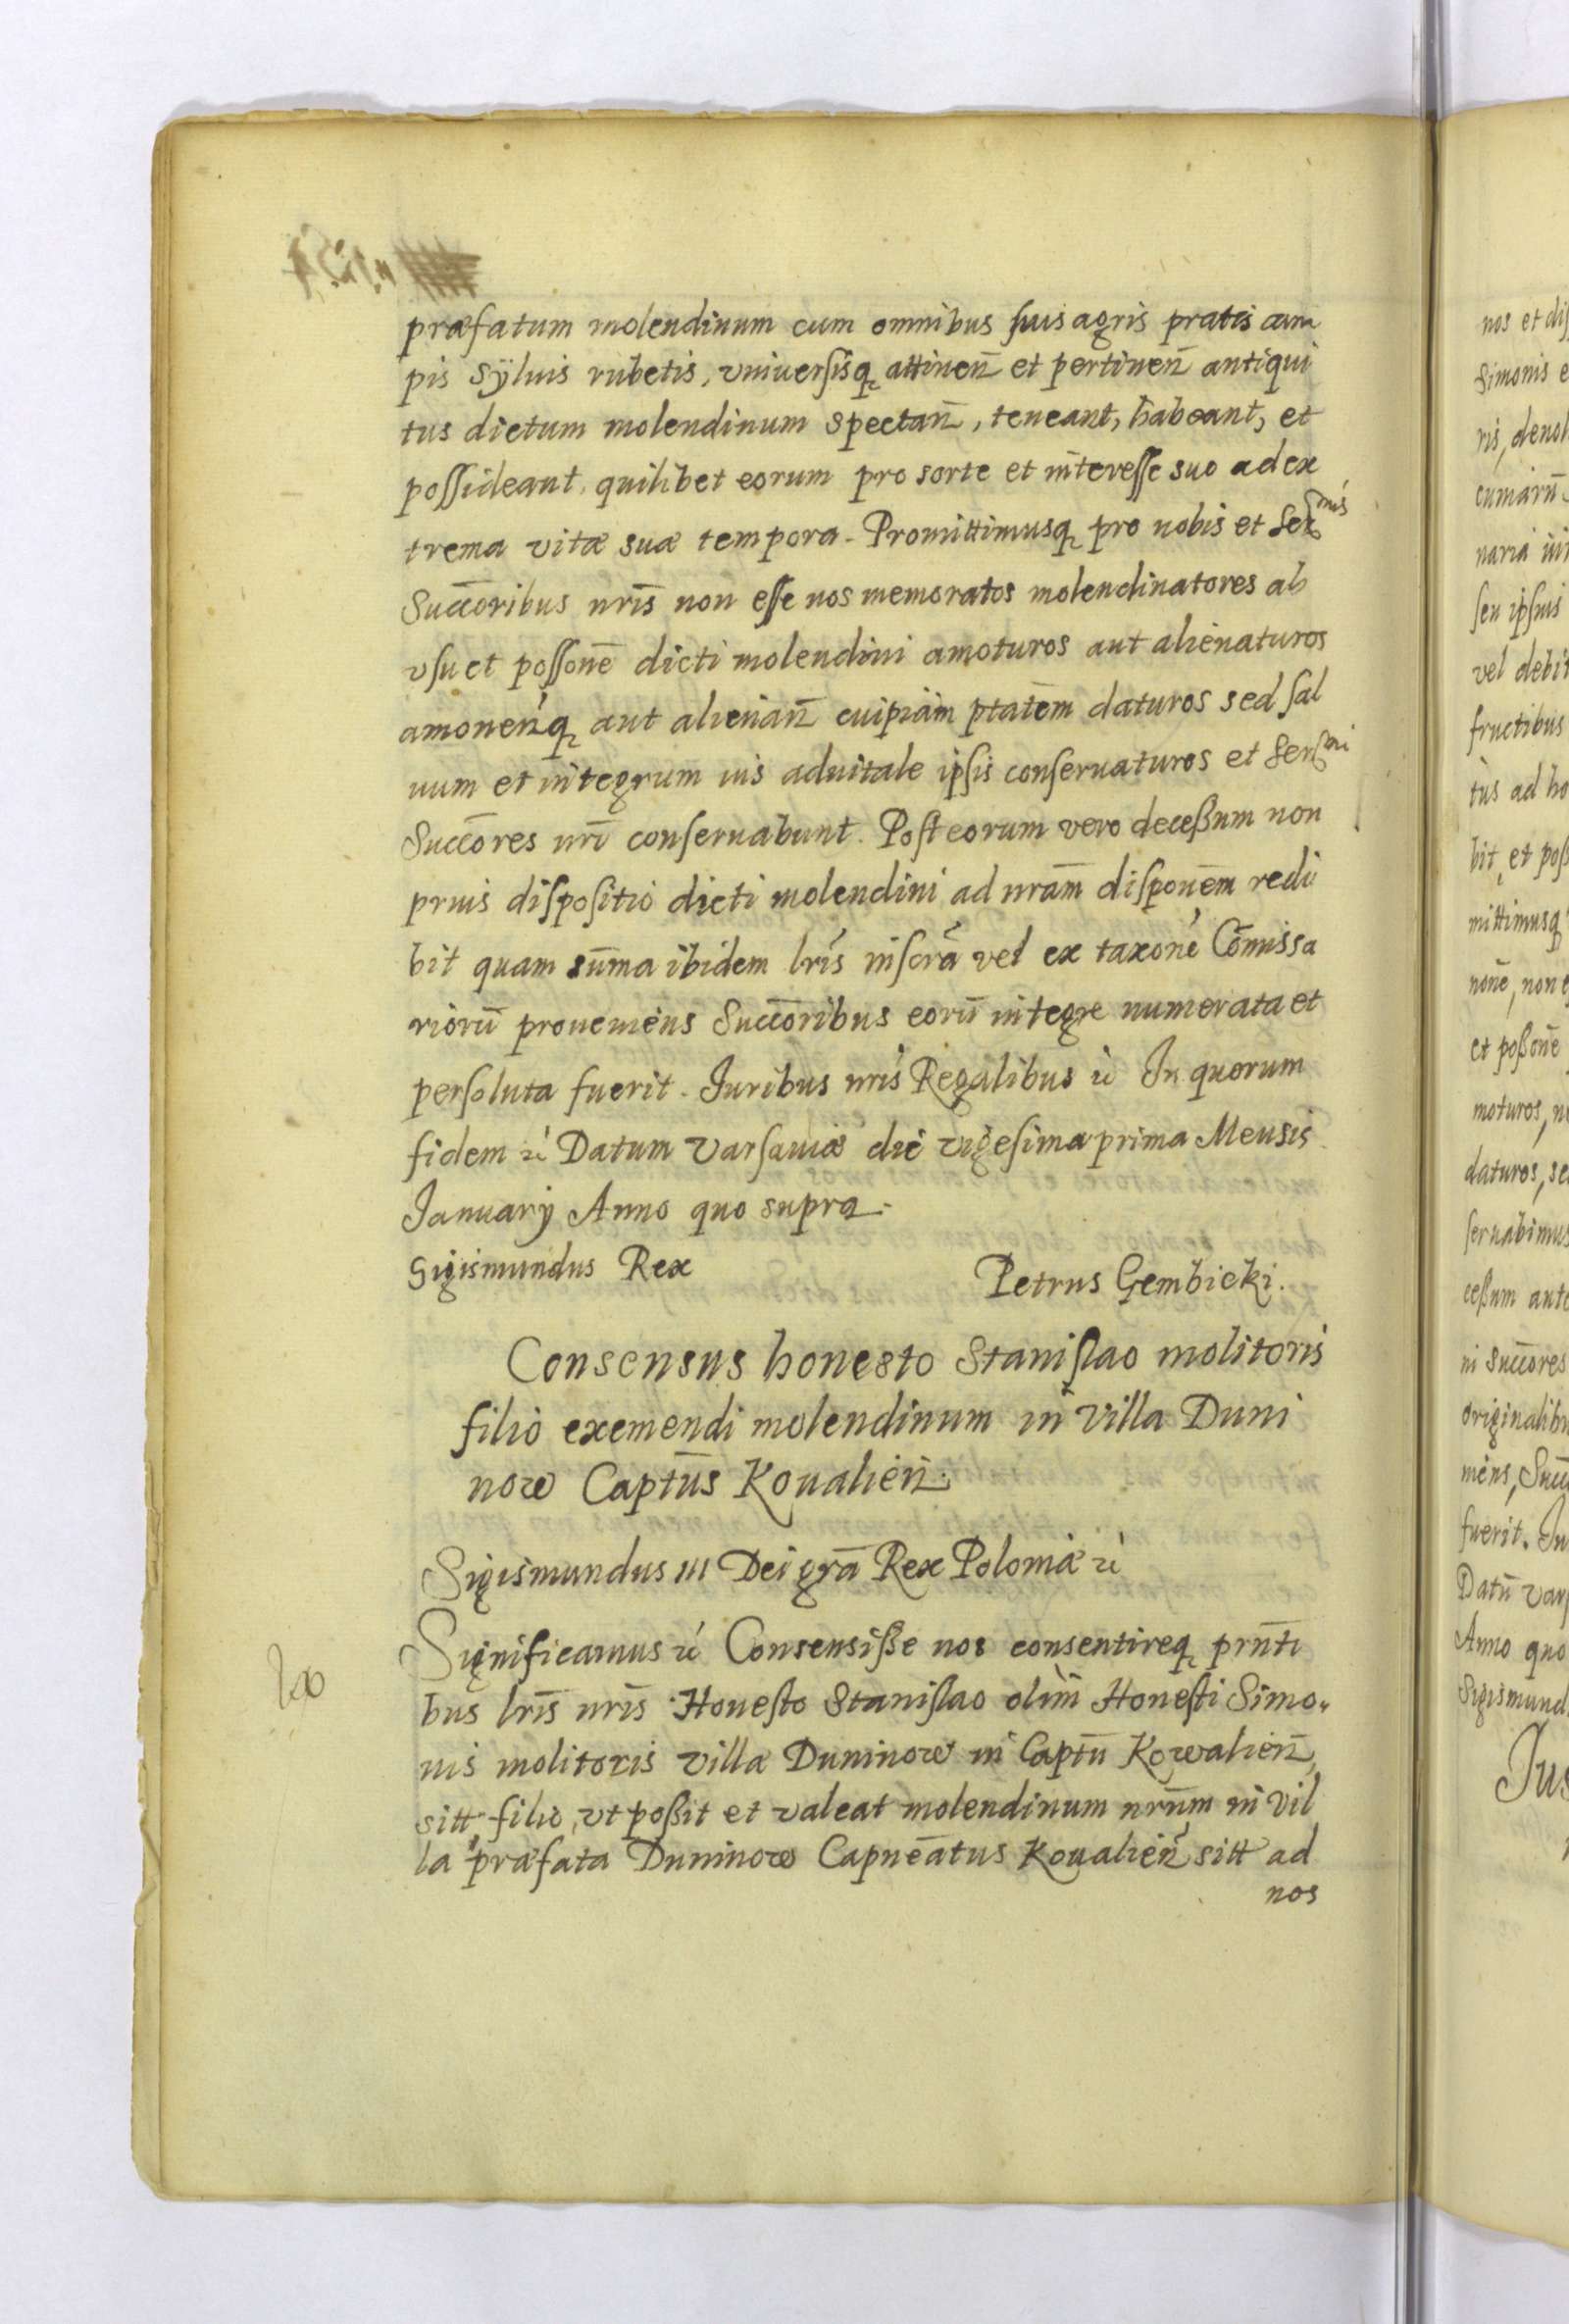 præfatum molendinum cum omnibus suis agris pratis cam
pis sÿluis rubetis, vniuersisq; attinen̄ et pertinen̄ antiqui
tus dictum molendinum spectan̄, teneant, habeant, et
possideant, quilibet eorum pro sorte et interesse suo ad ex
trema vitæ suæ tempora. Promittimusq; pro nobis et Ser^mis
Succōribus nrīs non esse nos memoratos molendinatores ab
vsu et possonē dicti molendini amoturos aut alienaturos
amonen̄q; aut alienan̄ cuipiam ptatēm daturos sed sal
uum et integrum ius aduitale ipsis conseruaturos et Ser^mi
Succōres nrī conseruabunt. Post eorum vero decessum non
prius dispositio dicti molendini ad nrām disponēm redi
bit quam sūma ibidem lrīs inscrā vel ex taxonē Cōmissa
riorū proueniens Succōribus eorū integre numerata et
persoluta fuerit. Iuribus nrīs Regalibus ꝛc̄ In quorum
fidem ꝛc̄ Datum Varsauiæ die vigesima prima Mensis
Ianuarÿ Anno quo supra.
Sigismundus Rex Petrus Gembicki.
Consensus honesto Stanislao molitoris
filio exemendi molendinum in villa Duni
now Captūs Koualien̄.
Sigismundus III Dei grā Rex Poloniæ ꝛc̄
Significamus ꝛc̄ Consensisse nos consentireq; prn̄ti
bus lrīs nrīs Honesto Stanislao olim Honesti Simo„
nis molitoris villæ Duninow in Captū Kowalien̄,
sitt filio, vt possit et valeat molendinum nrūm in vil
la præfata Duninow Capneātus Koualien̄ sitt ad
nos
nos et dis
Simonis e
vel debit
fructibus
tus ad ho
bit, et pos
mittimusq;
nonē, non e
et possonē
moturos, n
daturos, se
seruabimus
cessum aute
ni succōres
originalibu
fuerit. Iu
Datū Vars
Anno quo
Sigismund
Ius